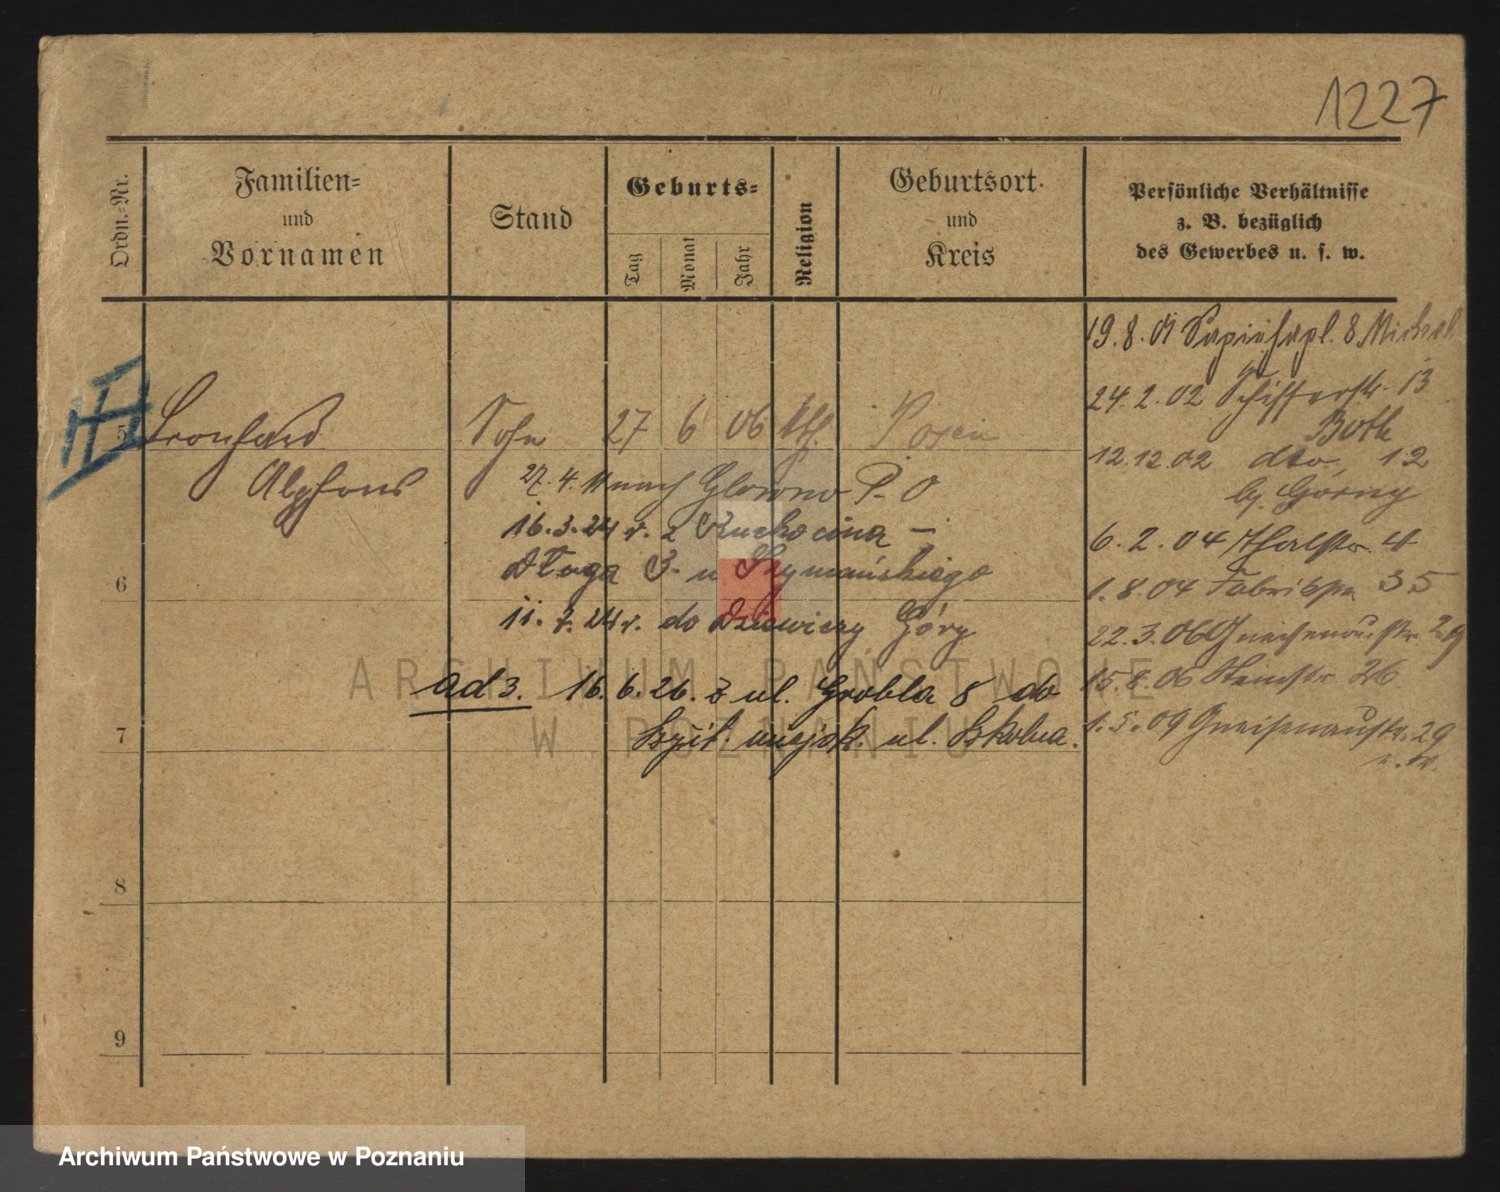 1227
Ordn.-Nr.
Familien-
und
Vornamen
Stand
Geburts-
Tag
Monat
Jahr
Religion
Geburtsort
und
Kreis
Persönliche Verhältnisse
z. B. bezüglich
des Gewerbes u. s. w.
19.8.01 Sapiehapl. 8
24.2.02 Schifferstr. 13
Both
12.12.02 dto, 12
b/ Górny
6.2.04 Thalstr. 4
1.8.04 35
22.3.06 Gneisenaustr.
15.8.06 26
1.5.09 Gneisenaustr. 29
5 Leonhard Sohn 27 6 06 kth. Posen
Alphons
27.4. nach Glowno P. O
16.3.24 r. z Ruchocina –
Długa 5- u Szymańskiego
6
11.7.24 r. do Dziewiczy Góry
ad 3. 16.6.26. z ul. Grobla 8 do
Szpit. miejsk. ul. Szkolna.
7
8
9
ARCHIWUM PAŃSTWOWE
W POZNANIU
Archiwum Państwowe w Poznaniu